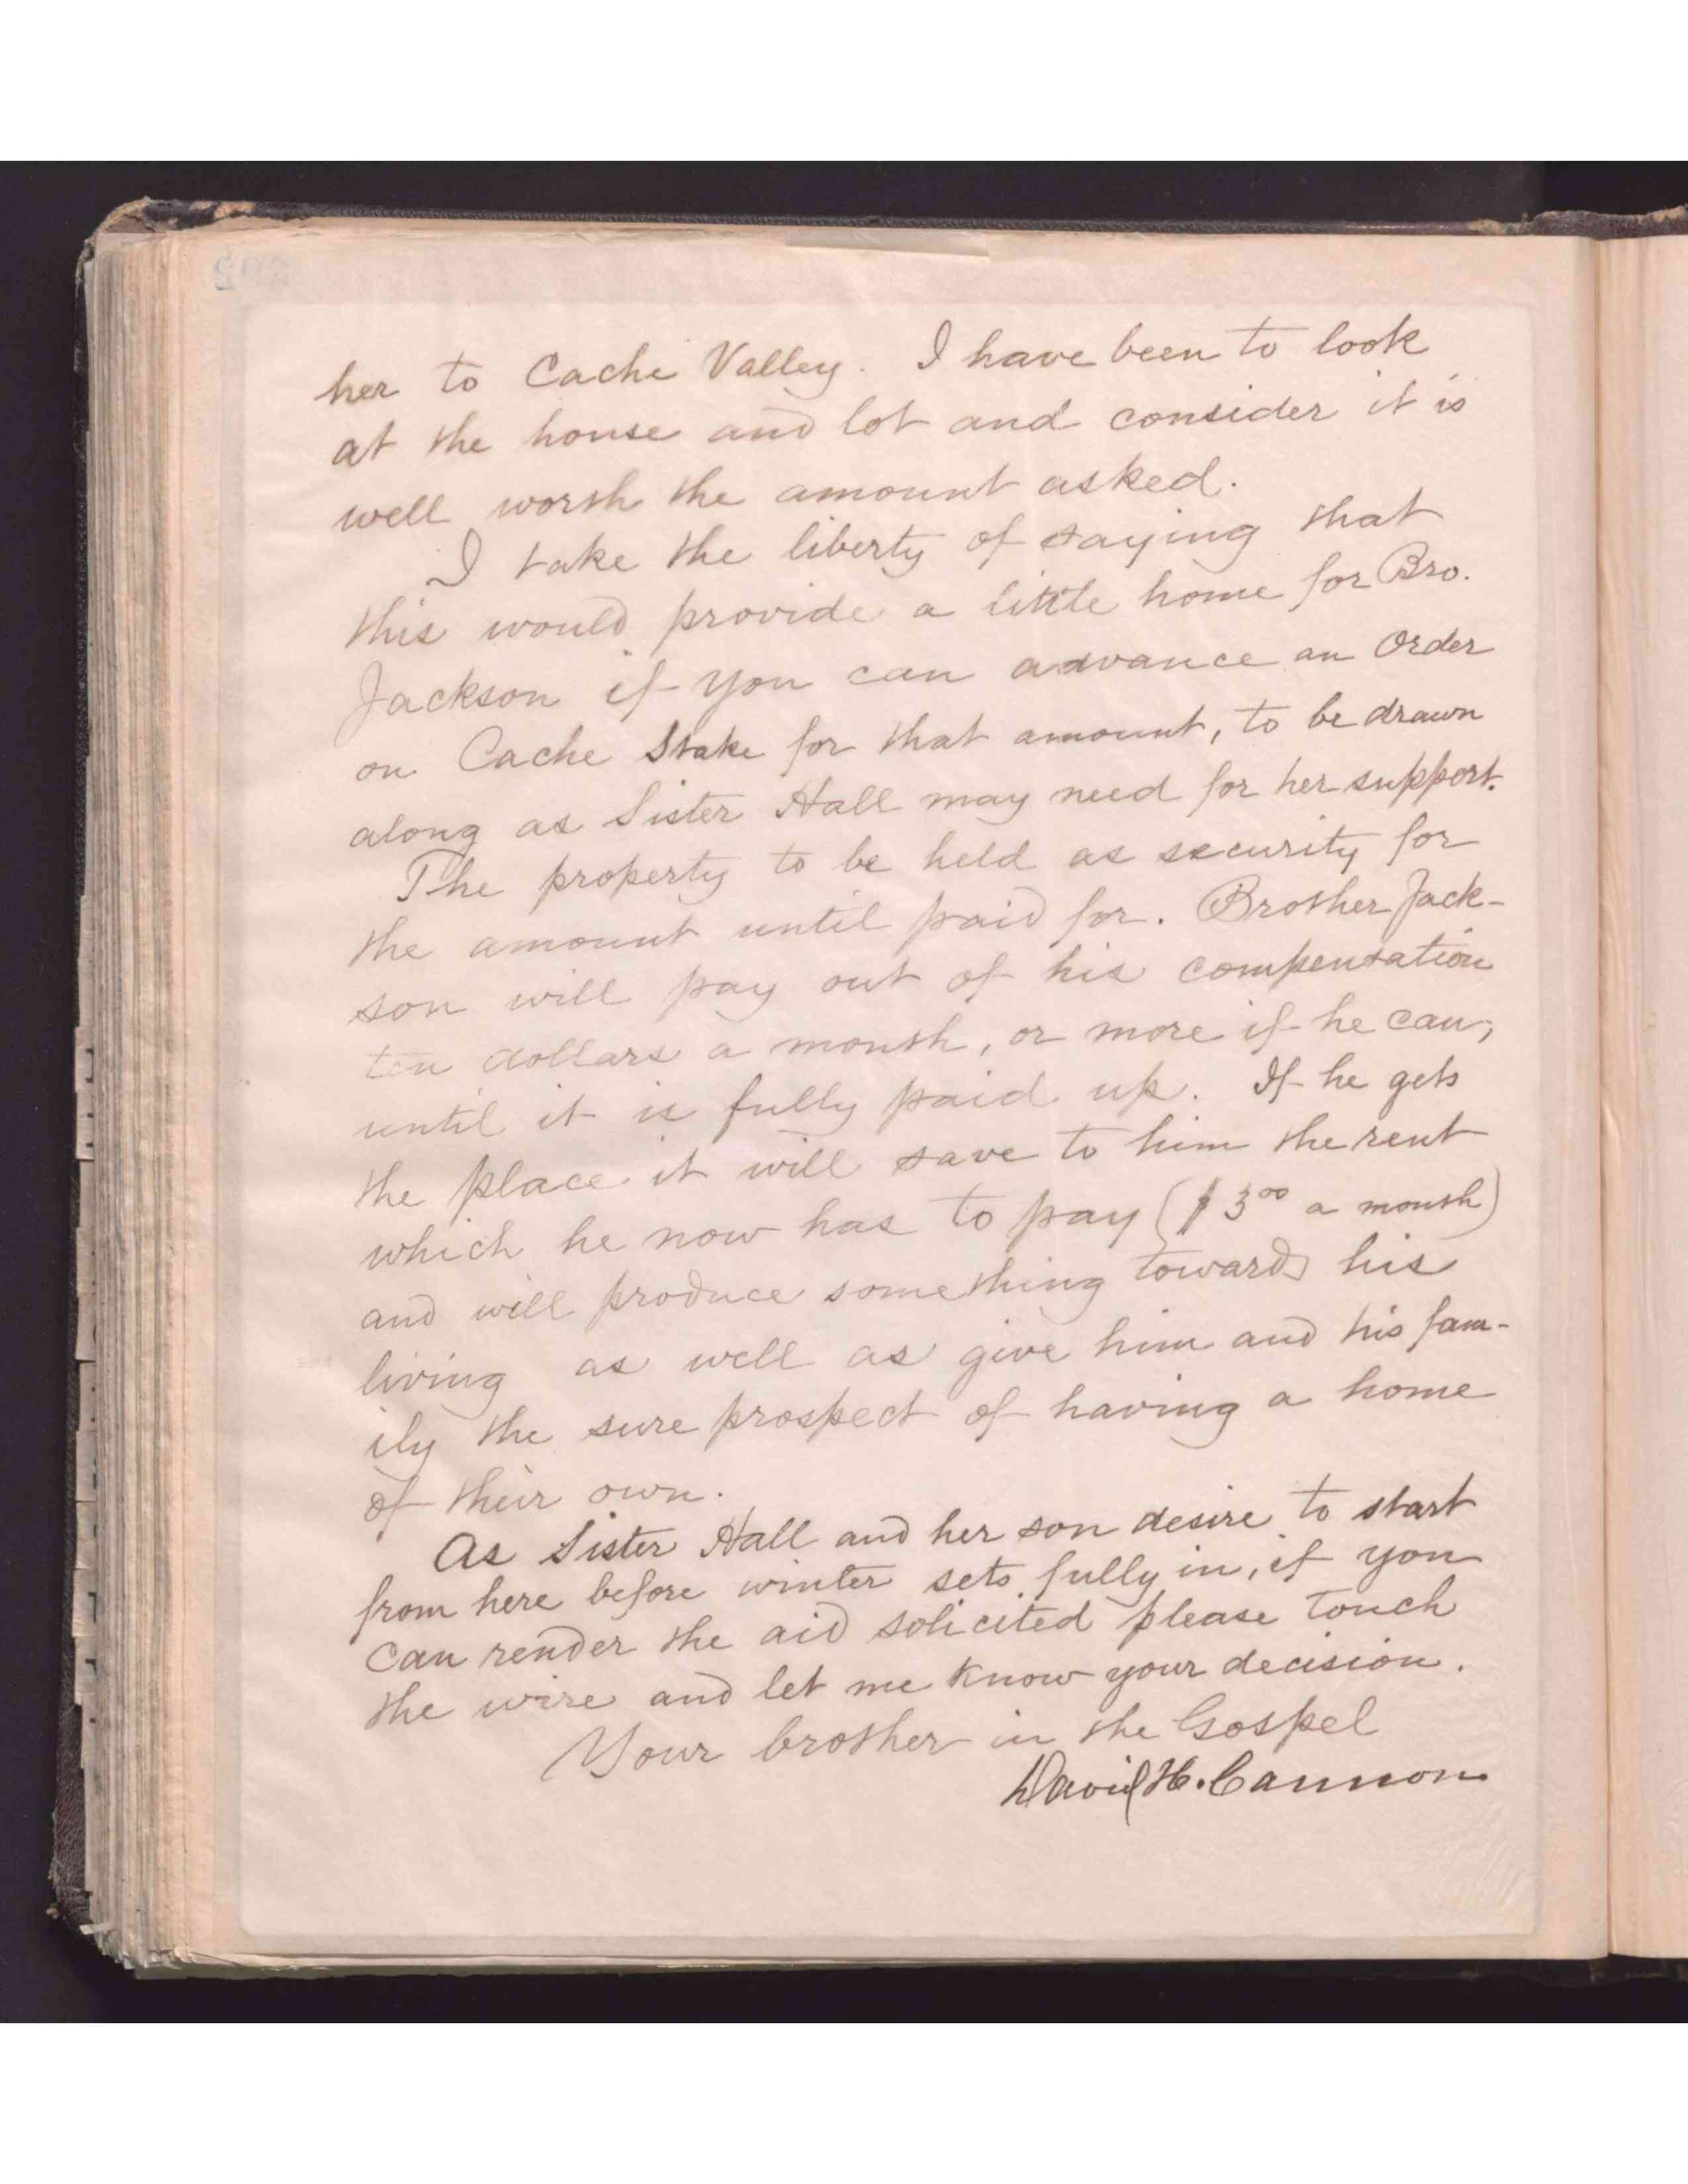 her to Cache Valley. I have been to look
at the house and lot and consider it is
well worth the amount asked.
I take the liberty of saying that
this would provide a little home for Bro.
Jackson if you can advance an Order
on Cache Stake for that amount, to be drawn
along as Sister Hall may need for her support.
The property to be held as security for
the amount until paid for. Brother Jack-
son will pay out of his compensation
ten dollars a month, or more if he can,
until it is fully paid up. If he gets
the place it will save to him the rent
which he now has to pay ($3.00 a month)
and will produce something towards his
living as well as give him and his fam-
ily the sure prospect of having a home
of their own.
As Sister Hall and her son desire to start
from here before winter sets fully in, if you
can render the aid solicited please touch
the wire and let me know your decision.
Your brother in the Gospel
David H. Cannon